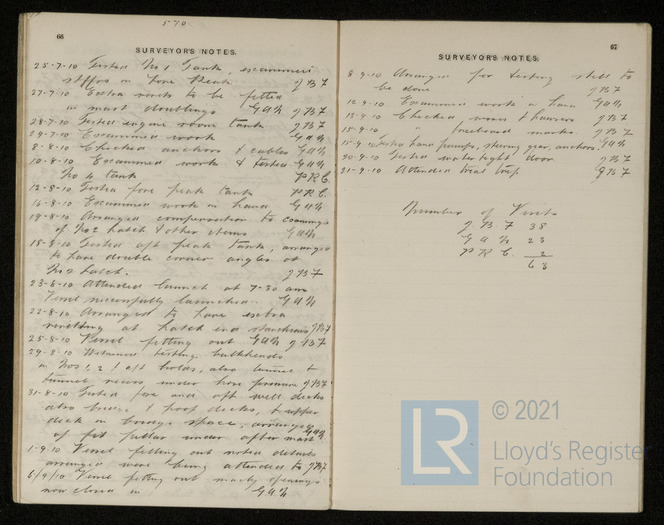 570.
66
SURVEYOR'S NOTES.
25-7-10 Tested No 1 Tank, examined
in Fore Peak J B F
27-7-10 Extra to be fitted
in mast doublings G A N J B F
28-7-10 Tested engine room tank J B F
29-7-10 Examined work G A N
8-8-10 Checked anchors & cables G A N
10-8-10 Examined work & tested G A N
No 4 tank P R C.
12-8-10 Tested fore peak tank P R C.
16-8-10 Examined work in hand G A N
19-8-10 Arranged compensation to coamings
of No 2 hatch & other items G A N
18-8-10 Tested aft peak tank, arranged
to have double corner angles at
No 2 hatch. J B F
23-8-10 Attended launch at 7-30 am
Vessel successfully launched. G A N
22-8-10 Arranged to have extra
rivetting at hatch end stanchions J B F
25-8-10 Vessel fitting out G A N J B F
29-8-10 Witnessed testing bulkheads
in Nos 1, 2 & aft holds, also tunnel &
tunnel recess, under hose pressure J B F
31-8-10 Tested fore and aft well decks
also bridge & poop decks, & upper
deck in bridge space, arranged
of fit pillar under after mast G A N
1-9-10 Vessel fitting out noted details
arranged were being attended to J B F
6/9/10 Vessel fitting out openings
now closed in G A N
67
SURVEYOR'S NOTES.
8-9-10 Arranged for testing still to
be done J B F
12-9-10 Examined work in hand G A N
13-9-10 Checked, & hawsers J B F
15-9-10 " freeboard marks J B F
15-9-10 Tested hand pumps, steering gear, anchors. G A N
20-9-10 Tested watertight door J B F
21-9-10 Attended trial trip J B F
Number of Visits
J B F 38
G A N 23
P R C. 2
63
LR
© 2021
Lloyd's Register
Foundation